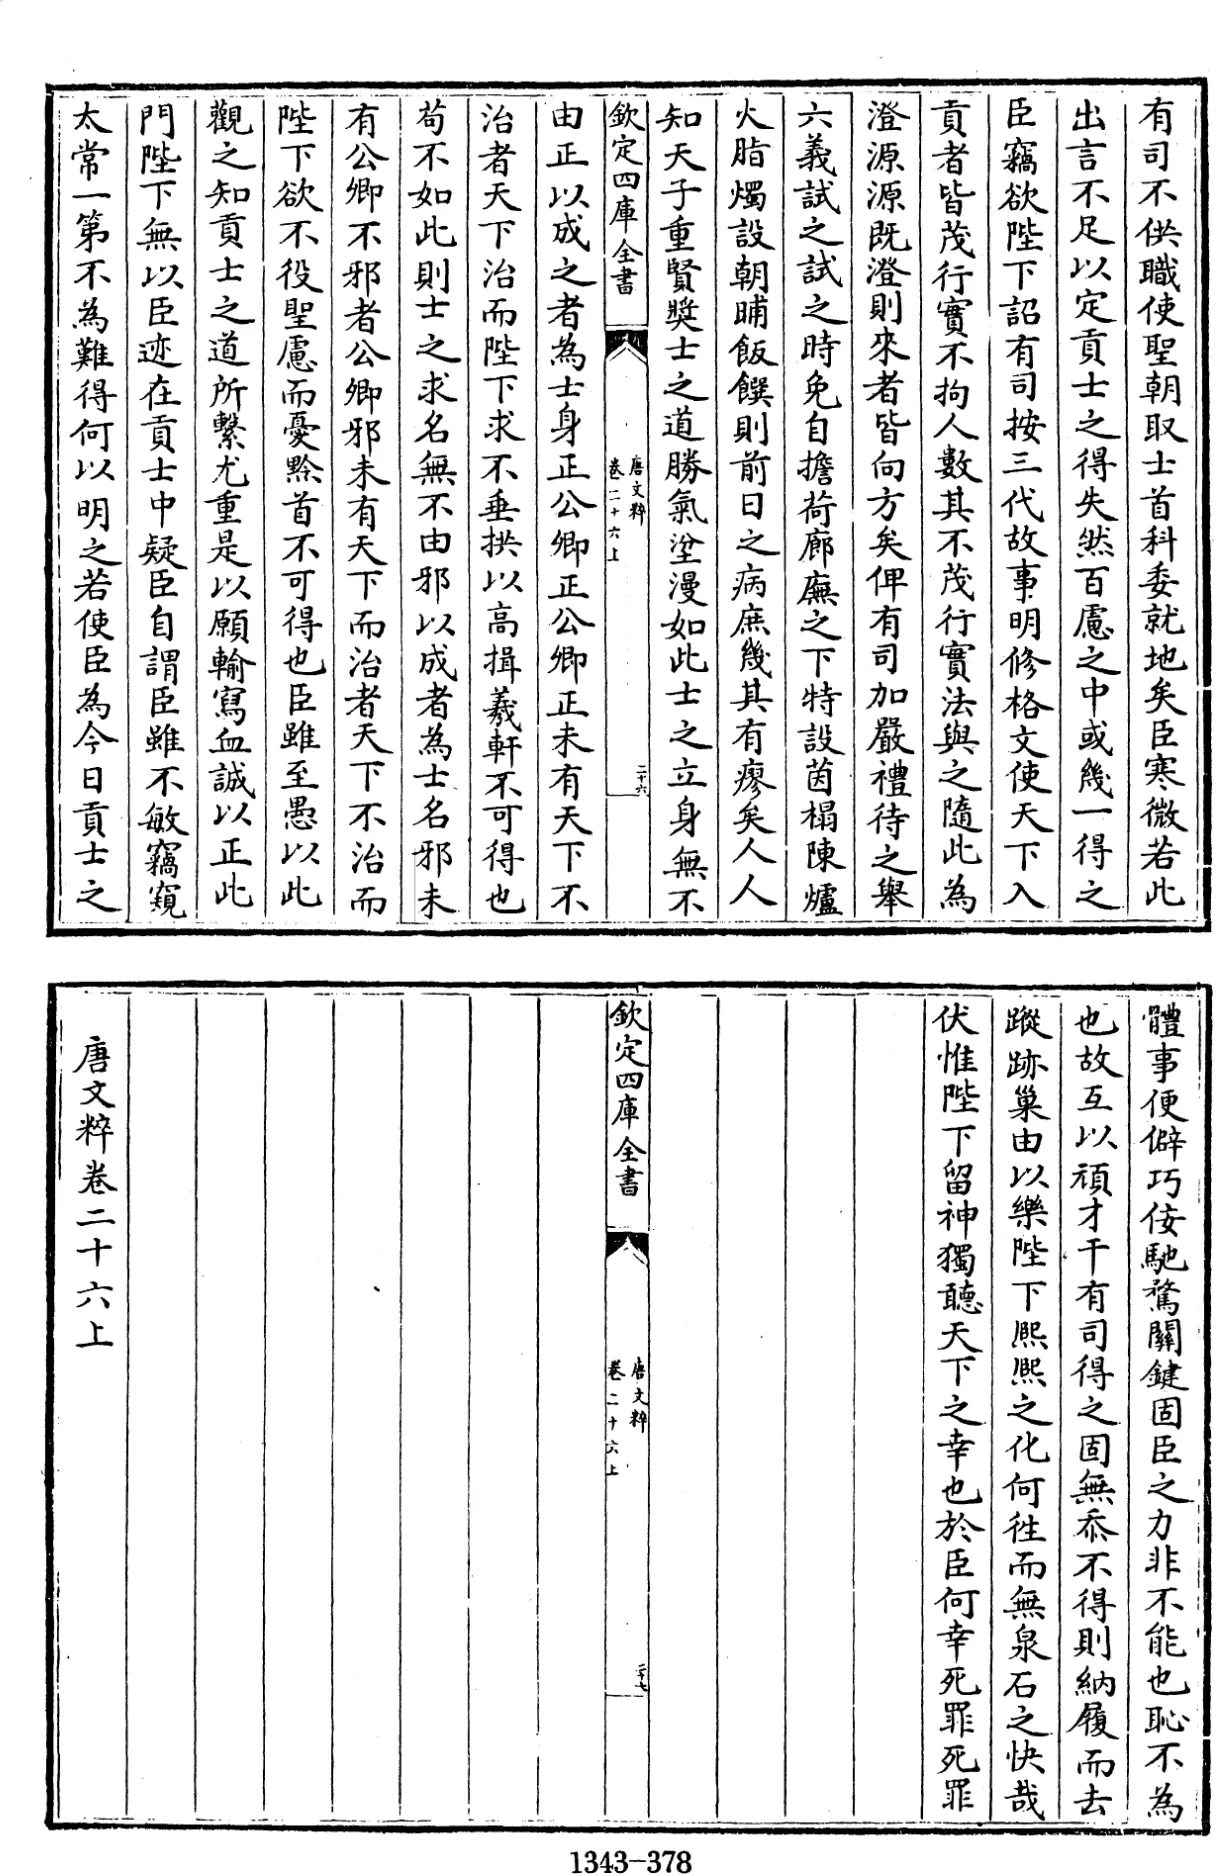 有司不供職使聖朝取士首科委就地矣臣寒微若此
出言不足以定貢士之得失然百慮之中或幾一得之
臣竊欲陛下詔有司按三代故事明修格文使天下入
貢者皆茂行實不拘人數其不茂行實法與之隨此為
澄源源既澄則來者皆向方矣俾有司加嚴禮待之舉
六義試之試之時免自擔荷廊廡之下特設茵榻陳爐
火脂燭設朝晡飯饌則前日之病庶幾其有瘳矣人人
知天子重賢奬士之道勝氣坌漫如此士之立身無不
欽定四庫全書
唐文粹
卷二十六上
二十六
由正以成之者為士身正公卿正公卿正未有天下不
治者天下治而陛下求不垂拱以高揖羲軒不可得也
苟不如此則士之求名無不由邪以成者為士名邪未
有公卿不邪者公卿邪未有天下而治者天下不治而
陛下欲不役聖慮而憂黔首不可得也臣雖至愚以此
觀之知貢士之道所繫尤重是以願輸寫血誠以正此
門陛下無以臣迹在貢士中疑臣自謂臣雖不敏竊窺
太常一第不為難得何以明之若使臣為今日貢士之
體事便僻巧侫馳騖關鍵固臣之力非不能也恥不為
也故互以頑才干有司得之固無忝不得則納履而去
蹤跡巢由以樂陛下熈熈之化何徃而無泉石之快哉
伏惟陛下留神獨聽天下之幸也於臣何幸死罪死罪
欽定四庫全書
唐文粹
卷二十六上
二十七
唐文粹卷二十六上
1343-378